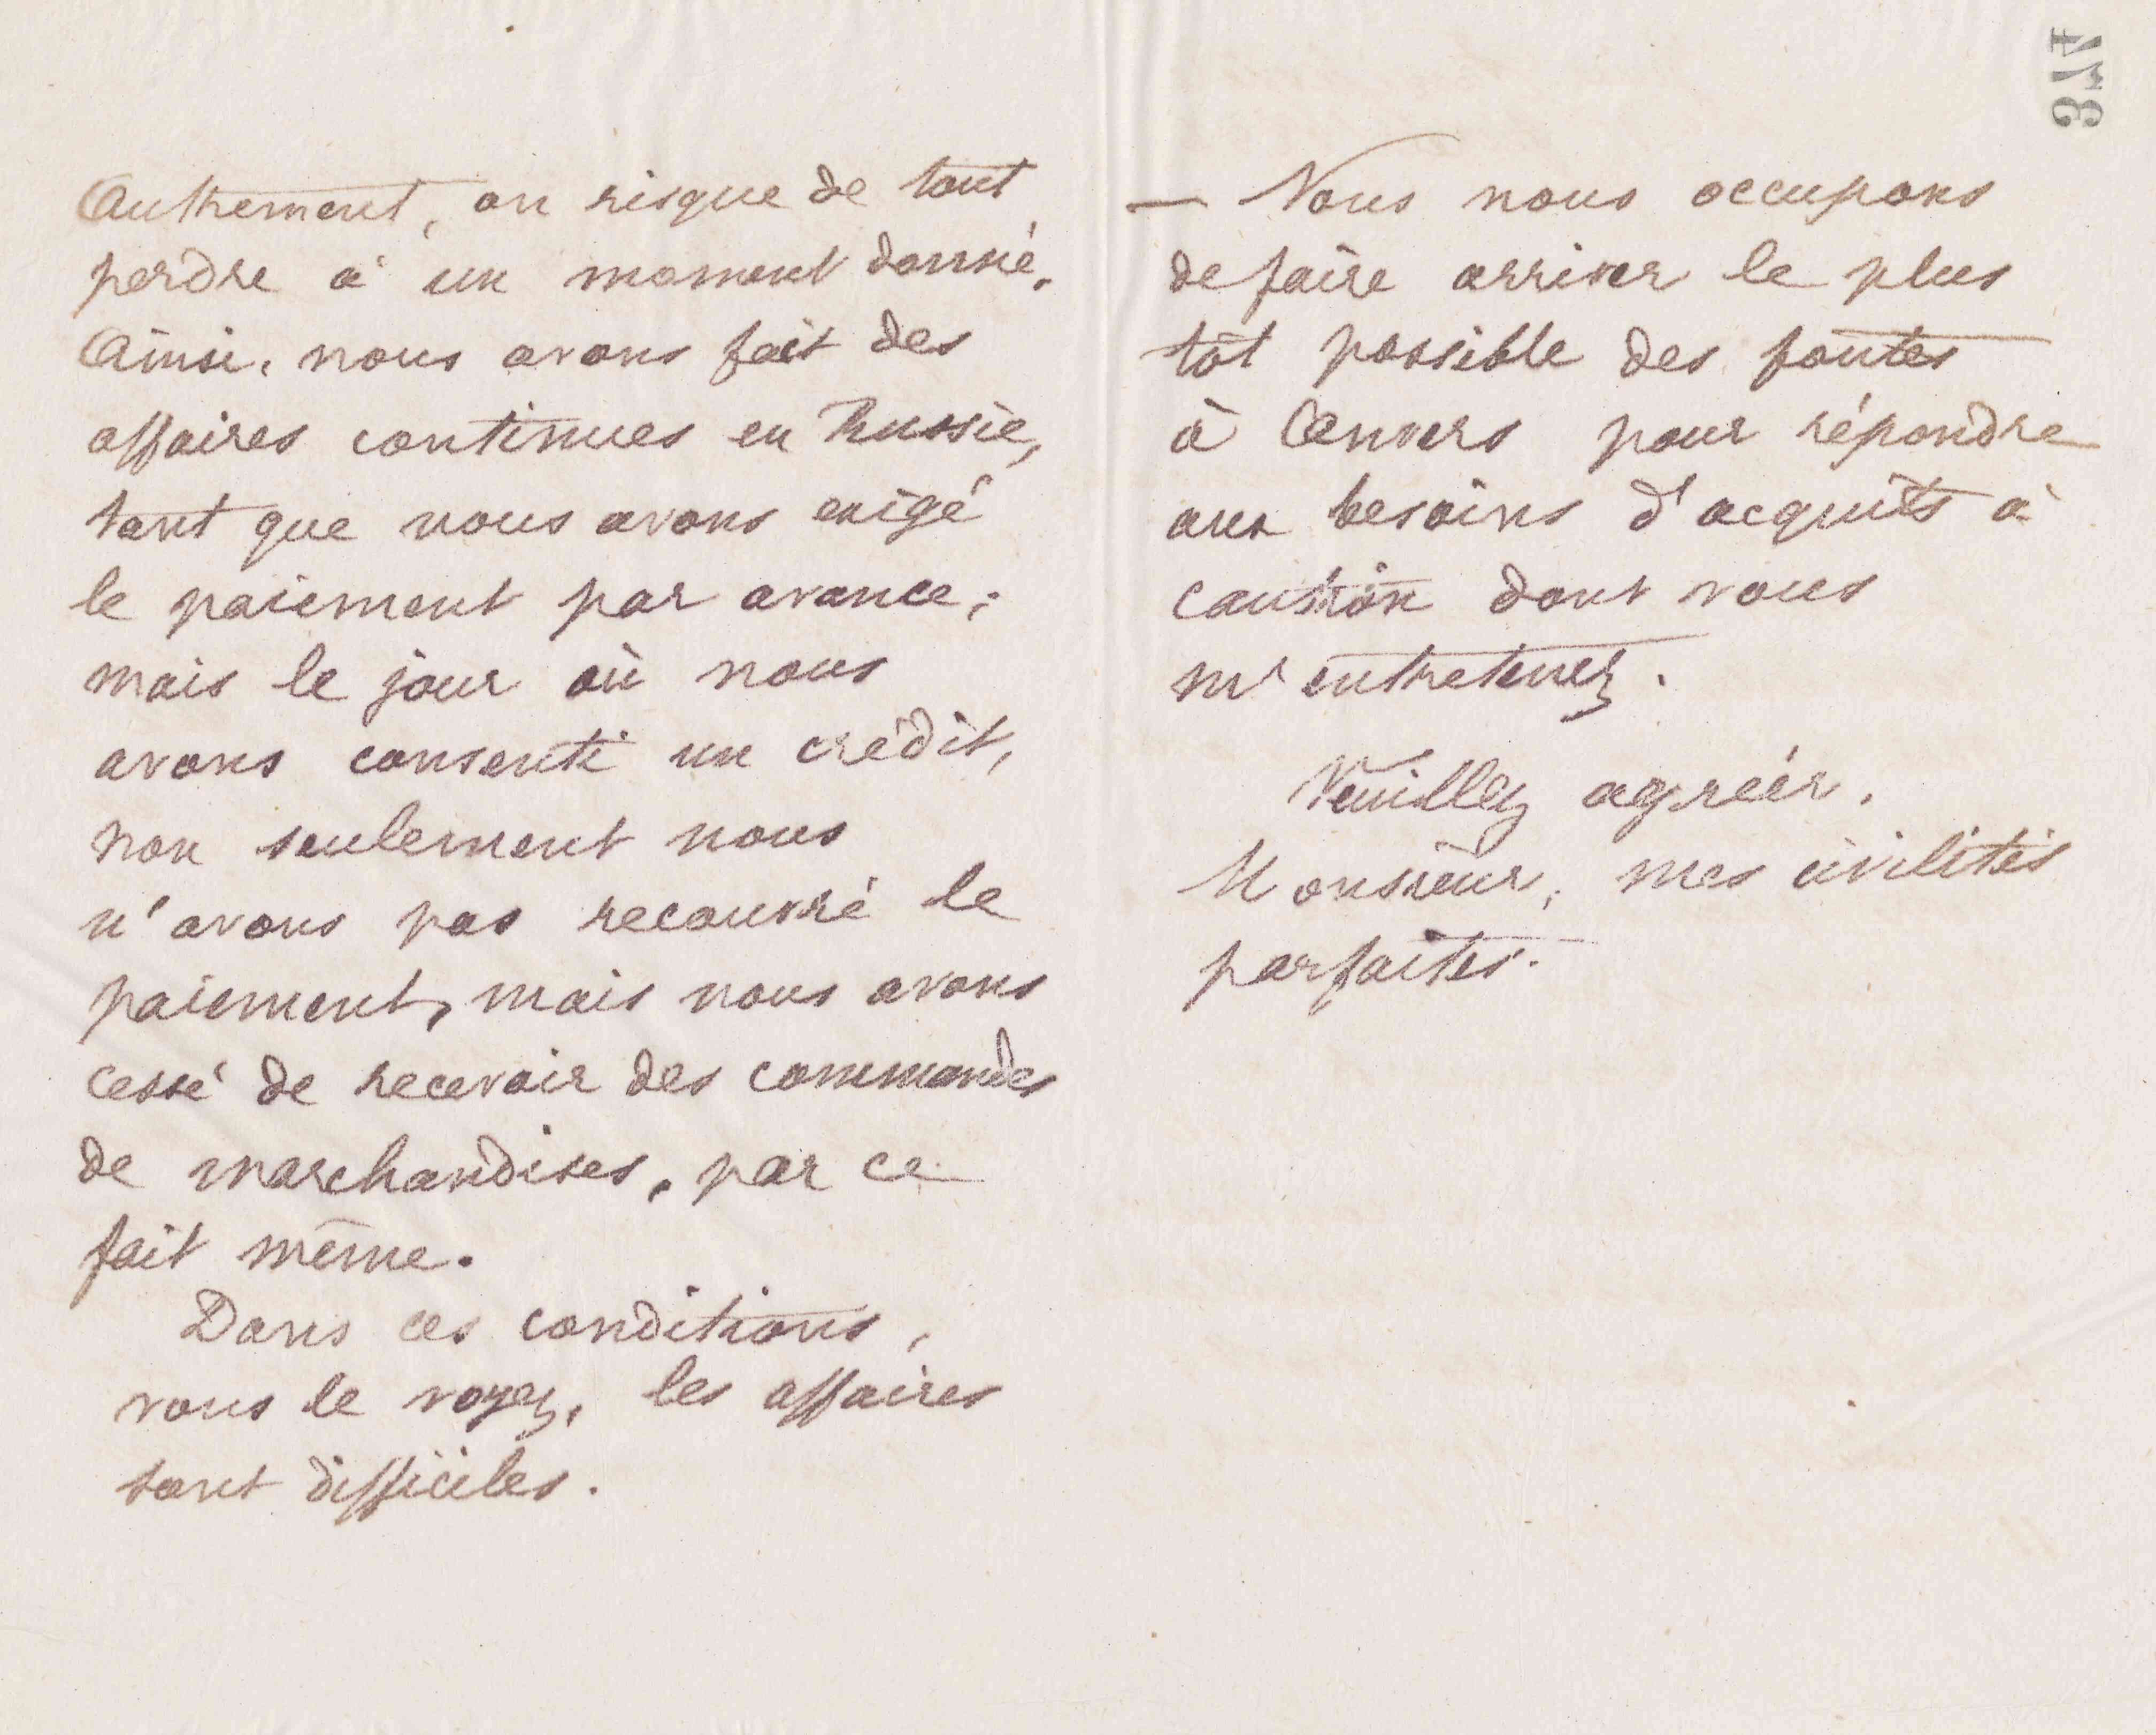 Autrement, on risque de tout
perdre à un moment donné.
Ainsi, nous avons fait des
affaires continues en Russie,
tant que nous avons exigé
le paiement par avance;
mais le jour où nous
avons consenti un crédit,
non seulement nous
n'avons pas recouvré le
paiement, mais nous avons
cessé de recevoir des commandes
de marchandises, par ce
fait même.
Dans ces conditions,
vous le voyez, les affaires
sont difficiles.
374
— Nous nous occupons
de faire arriver le plus
tôt possible des fontes
à Anvers pour répondre
aux besoins d'acquits à
caution dont vous
m'entretenez.
Veuillez agréer,
Monsieur, mes civilités
parfaites.